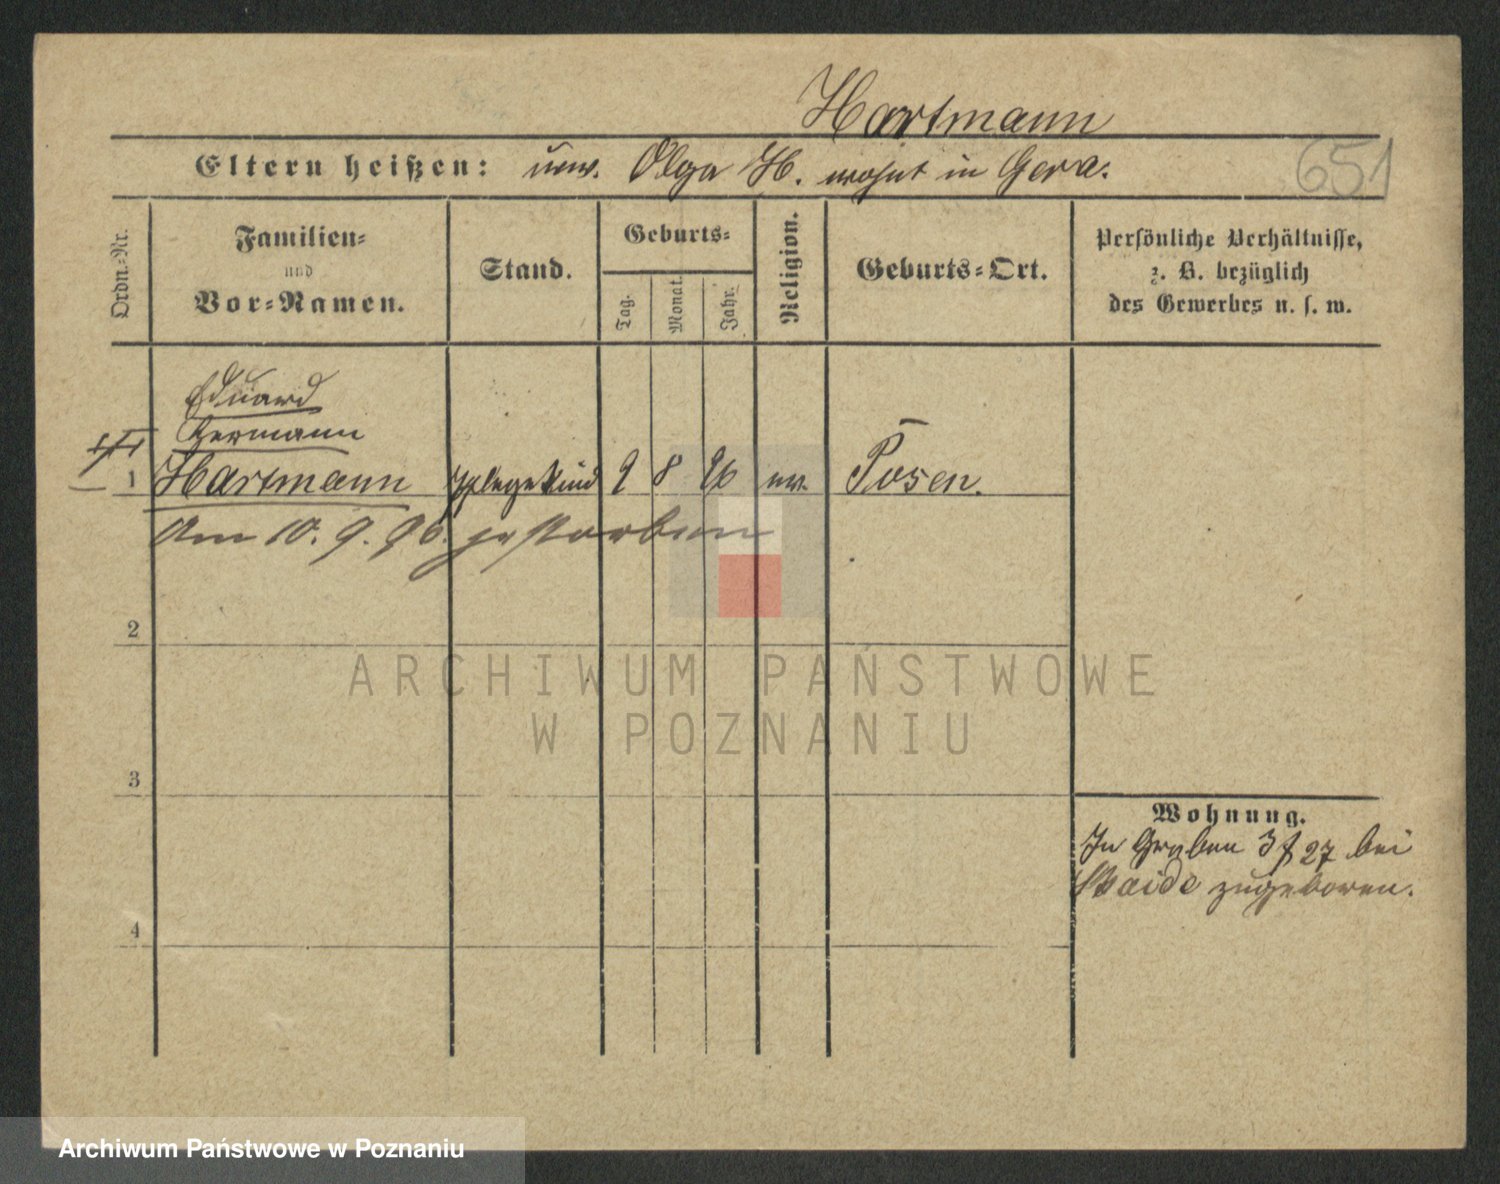 Hartmann
Eltern heißen: unv. Olga H. wohnt in Gera.
651
Ordn.-Nr.
Familien-
und
Vor-Namen.
Stand.
Geburts-
Tag.
Monat.
Jahr.
Religion.
Geburts-Ort.
Persönliche Verhältnisse,
z. B. bezüglich
des Gewerbes u. s. w.
Eduard
Hermann
1 Hartmann Pflegekind 9 8 96 ev. Posen.
Am 10. 9. 96. gestorben
2
3
4
Wohnung.
In Graben 3 f 27 bei
zugeboren.
ARCHIWUM PAŃSTWOWE
W POZNANIU
Archiwum Państwowe w Poznaniu